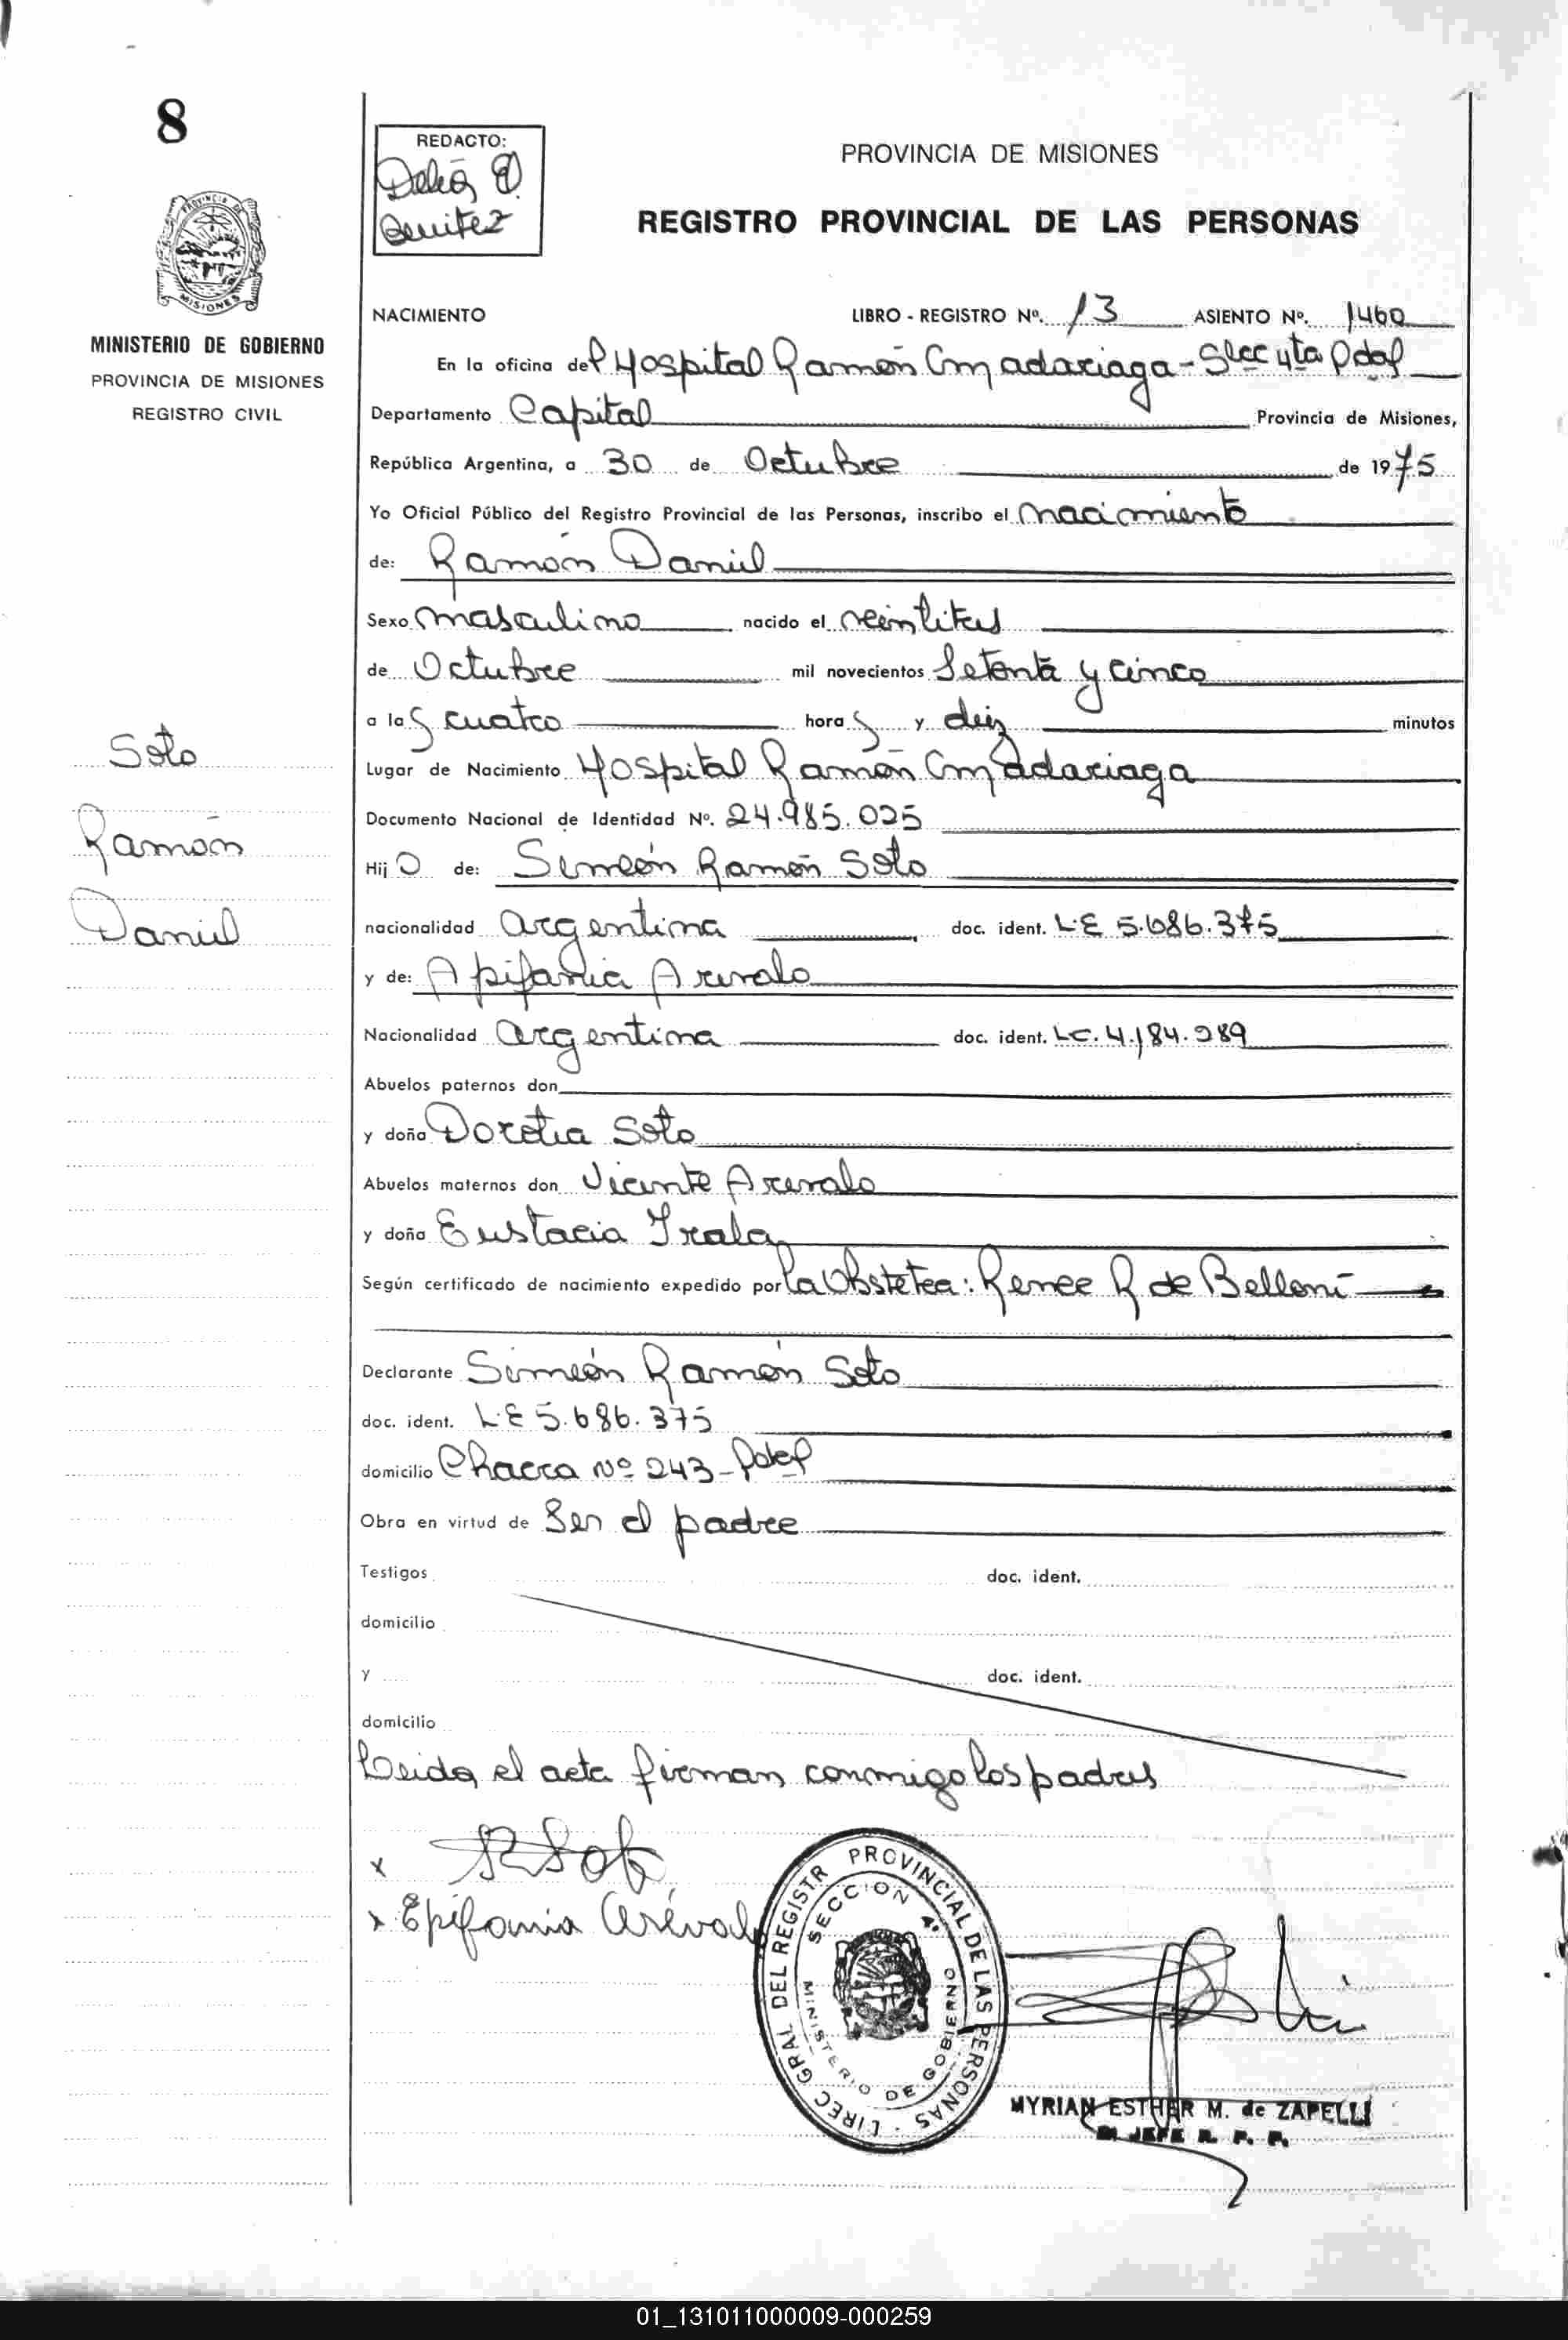 8
REDACTO:
Delia E.
Benitez
PROVINCIA DE MISIONES
REGISTRO PROVINCIAL DE LAS PERSONAS
PROVINCIA DE
MISIONES
MINISTERIO DE GOBIERNO
PROVINCIA DE MISIONES
REGISTRO CIVIL
NACIMIENTO LIBRO - REGISTRO Nº. 13 ASIENTO Nº. 1460
En la oficina del Hospital Ramón Madariaga - Secc 4ta Pdas
Departamento Capital Provincia de Misiones,
República Argentina, a 30 de Octubre de 1975
Yo Oficial Público del Registro Provincial de las Personas, inscribo el nacimiento
de: Ramón Daniel
Sexo masculino nacido el veintitres
de Octubre mil novecientos Setenta y cinco
a las cuatro horas y diez minutos
Lugar de Nacimiento Hospital Ramón Madariaga
Documento Nacional de Identidad Nº. 24.985.025
Hijo de: Simeón Ramón Soto
nacionalidad argentina doc. ident. LE 5.686.375
y de: Apifania Arevalo
Nacionalidad argentina doc. ident. LC. 4.184.289
Abuelos paternos don
y doña Dorotea Soto
Abuelos maternos don Vicente Arevalo
y doña Eustacia Irala
Según certificado de nacimiento expedido por la Obstetra: Renee R de Belloni
Declarante Simeón Ramón Soto
doc. ident. LE 5.686.375
domicilio Chacra Nº 243 - Pdas
Obra en virtud de Ser el padre
Testigos doc. ident.
domicilio
y doc. ident.
domicilio
Leida el acta firman conmigo los padres
Soto
Ramón
Daniel
x RSoto
x Epifania Arévalo
DIREC GRAL DEL REGISTR PROVINCIAL DE LAS PERSONAS
SECCION 4ª
MINISTERIO DE GOBIERNO
MYRIAN ESTHER M. de ZAPELLI
JEFE R. P. P.
01_131011000009-000259